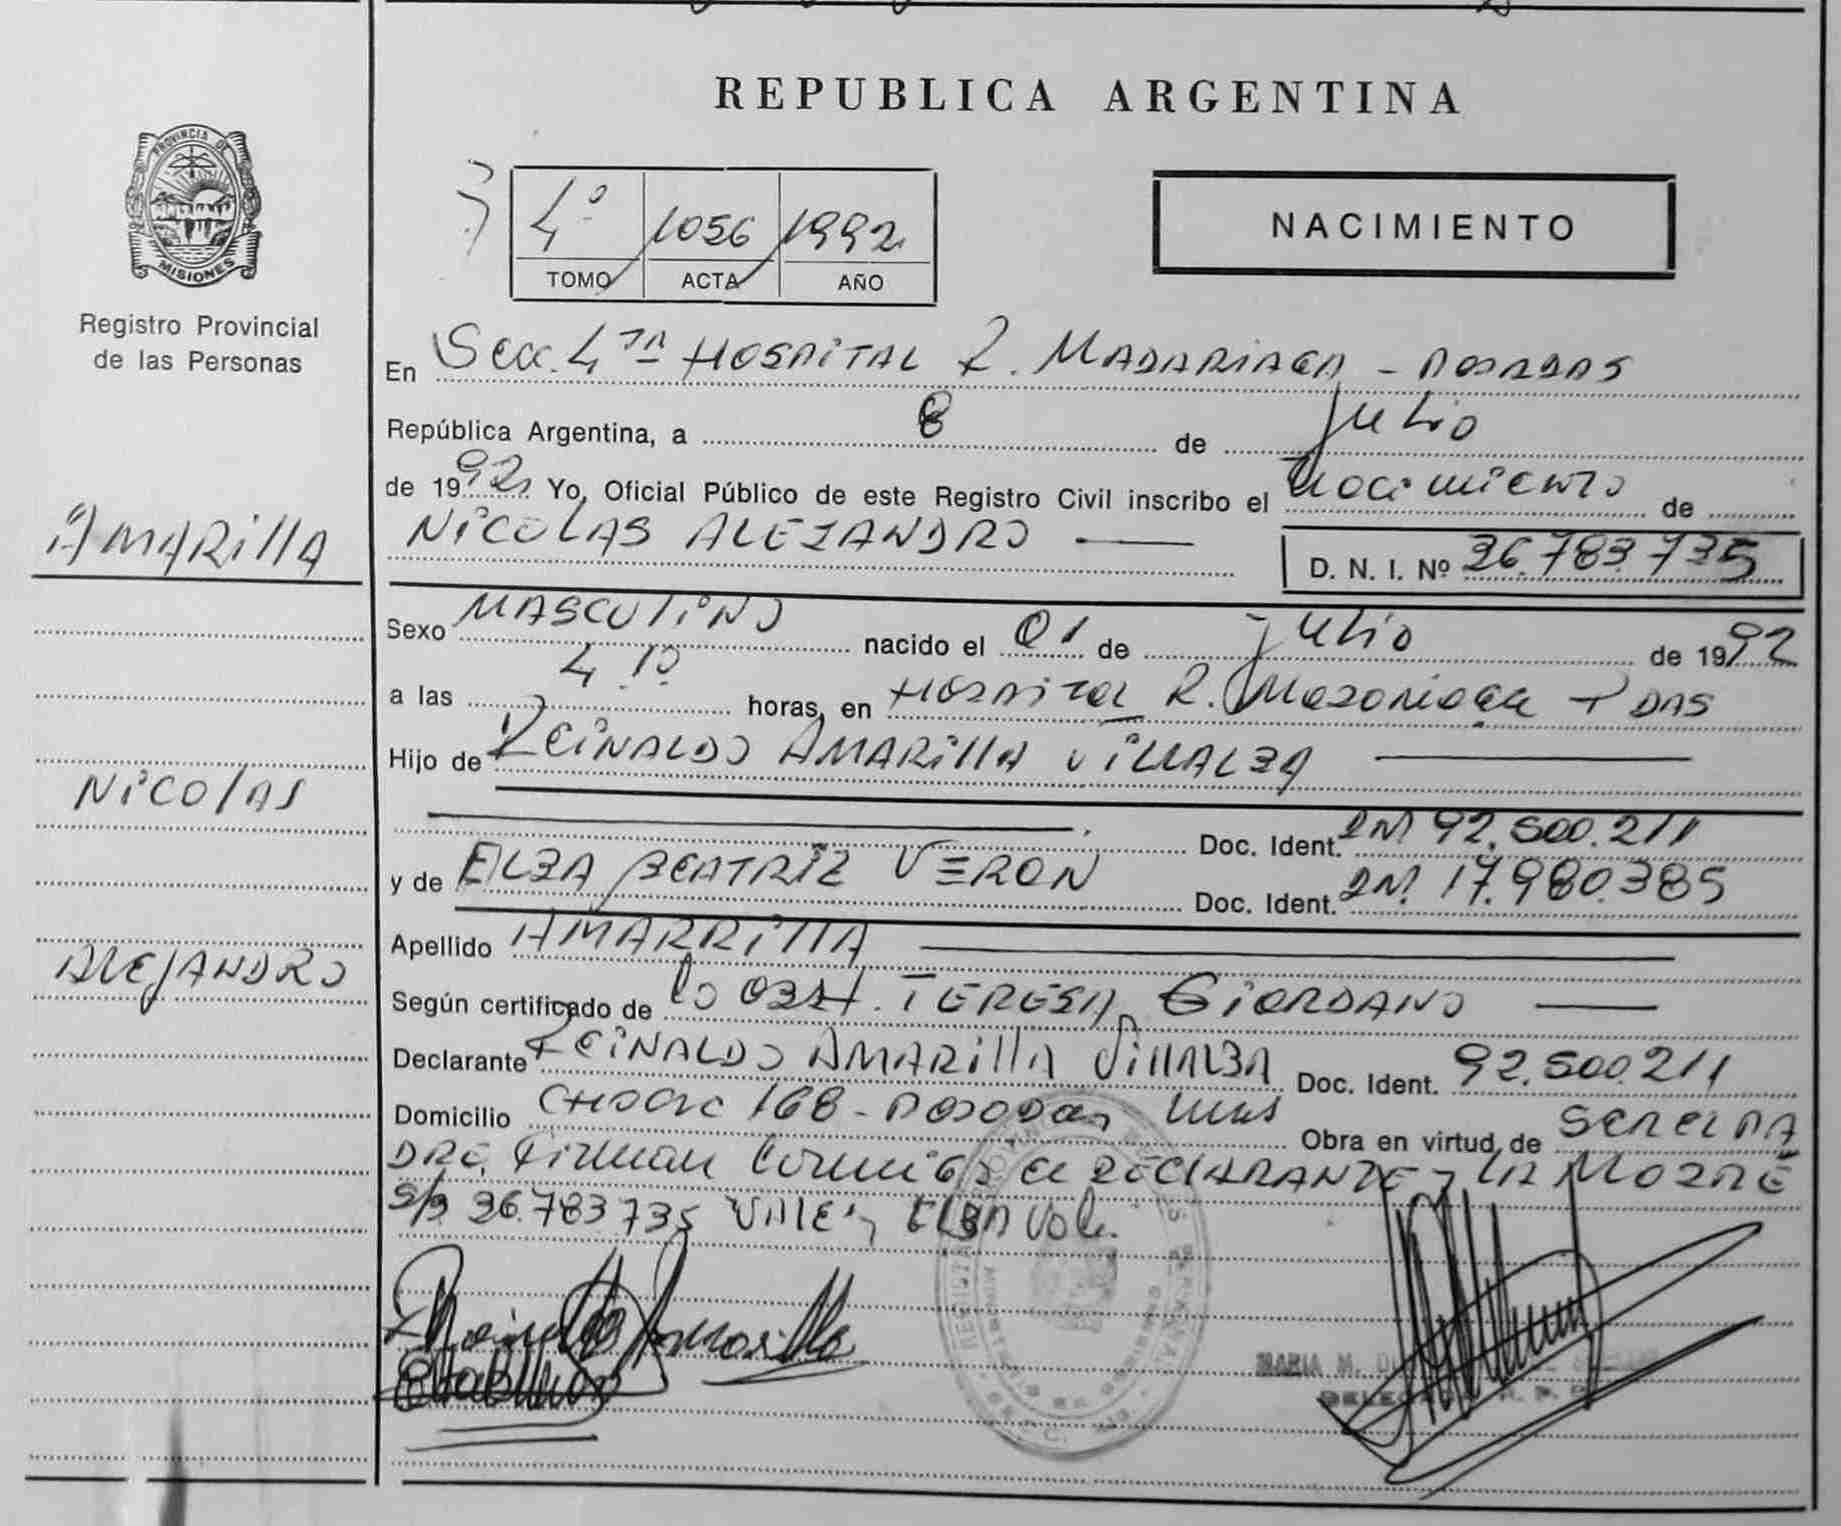 REPUBLICA ARGENTINA
PROVINCIA DE
MISIONES
Registro Provincial
de las Personas
4º 1056 1992
TOMO ACTA AÑO
NACIMIENTO
En Secc. 4TA HOSPITAL R. MADARIAGA - POSADAS
República Argentina, a 8 de Julio
de 1992 Yo, Oficial Público de este Registro Civil inscribo el Nacimiento de
AMARIllA
NICOLAS ALEJANDRO
D. N. I. Nº 36.783.735
Sexo MASCULINO nacido el 01 de Julio de 1992
a las 4.10 horas, en Hospital R. Madariaga - PDAS
Hijo de REINALDO AMARIllA VILLALBA
NICOLAS
Doc. Ident. DNI 92.500.211
y de ELBA BEATRIZ VERON Doc. Ident. DNI. 17.980.385
Apellido AMARRILLA
ALEJANDRO
Según certificado de la OBST. TERESA GIORDANO
Declarante REINALDO AMARIllA VIllALBA Doc. Ident. 92.500.211
Domicilio 168 - Posadas Mns Obra en virtud de SER EL PA
DRE. Firman conmigo el DECLARANTE y LA MADRE
S/B 36.783.735 VALE, ELBA Vale.
MARIA M.